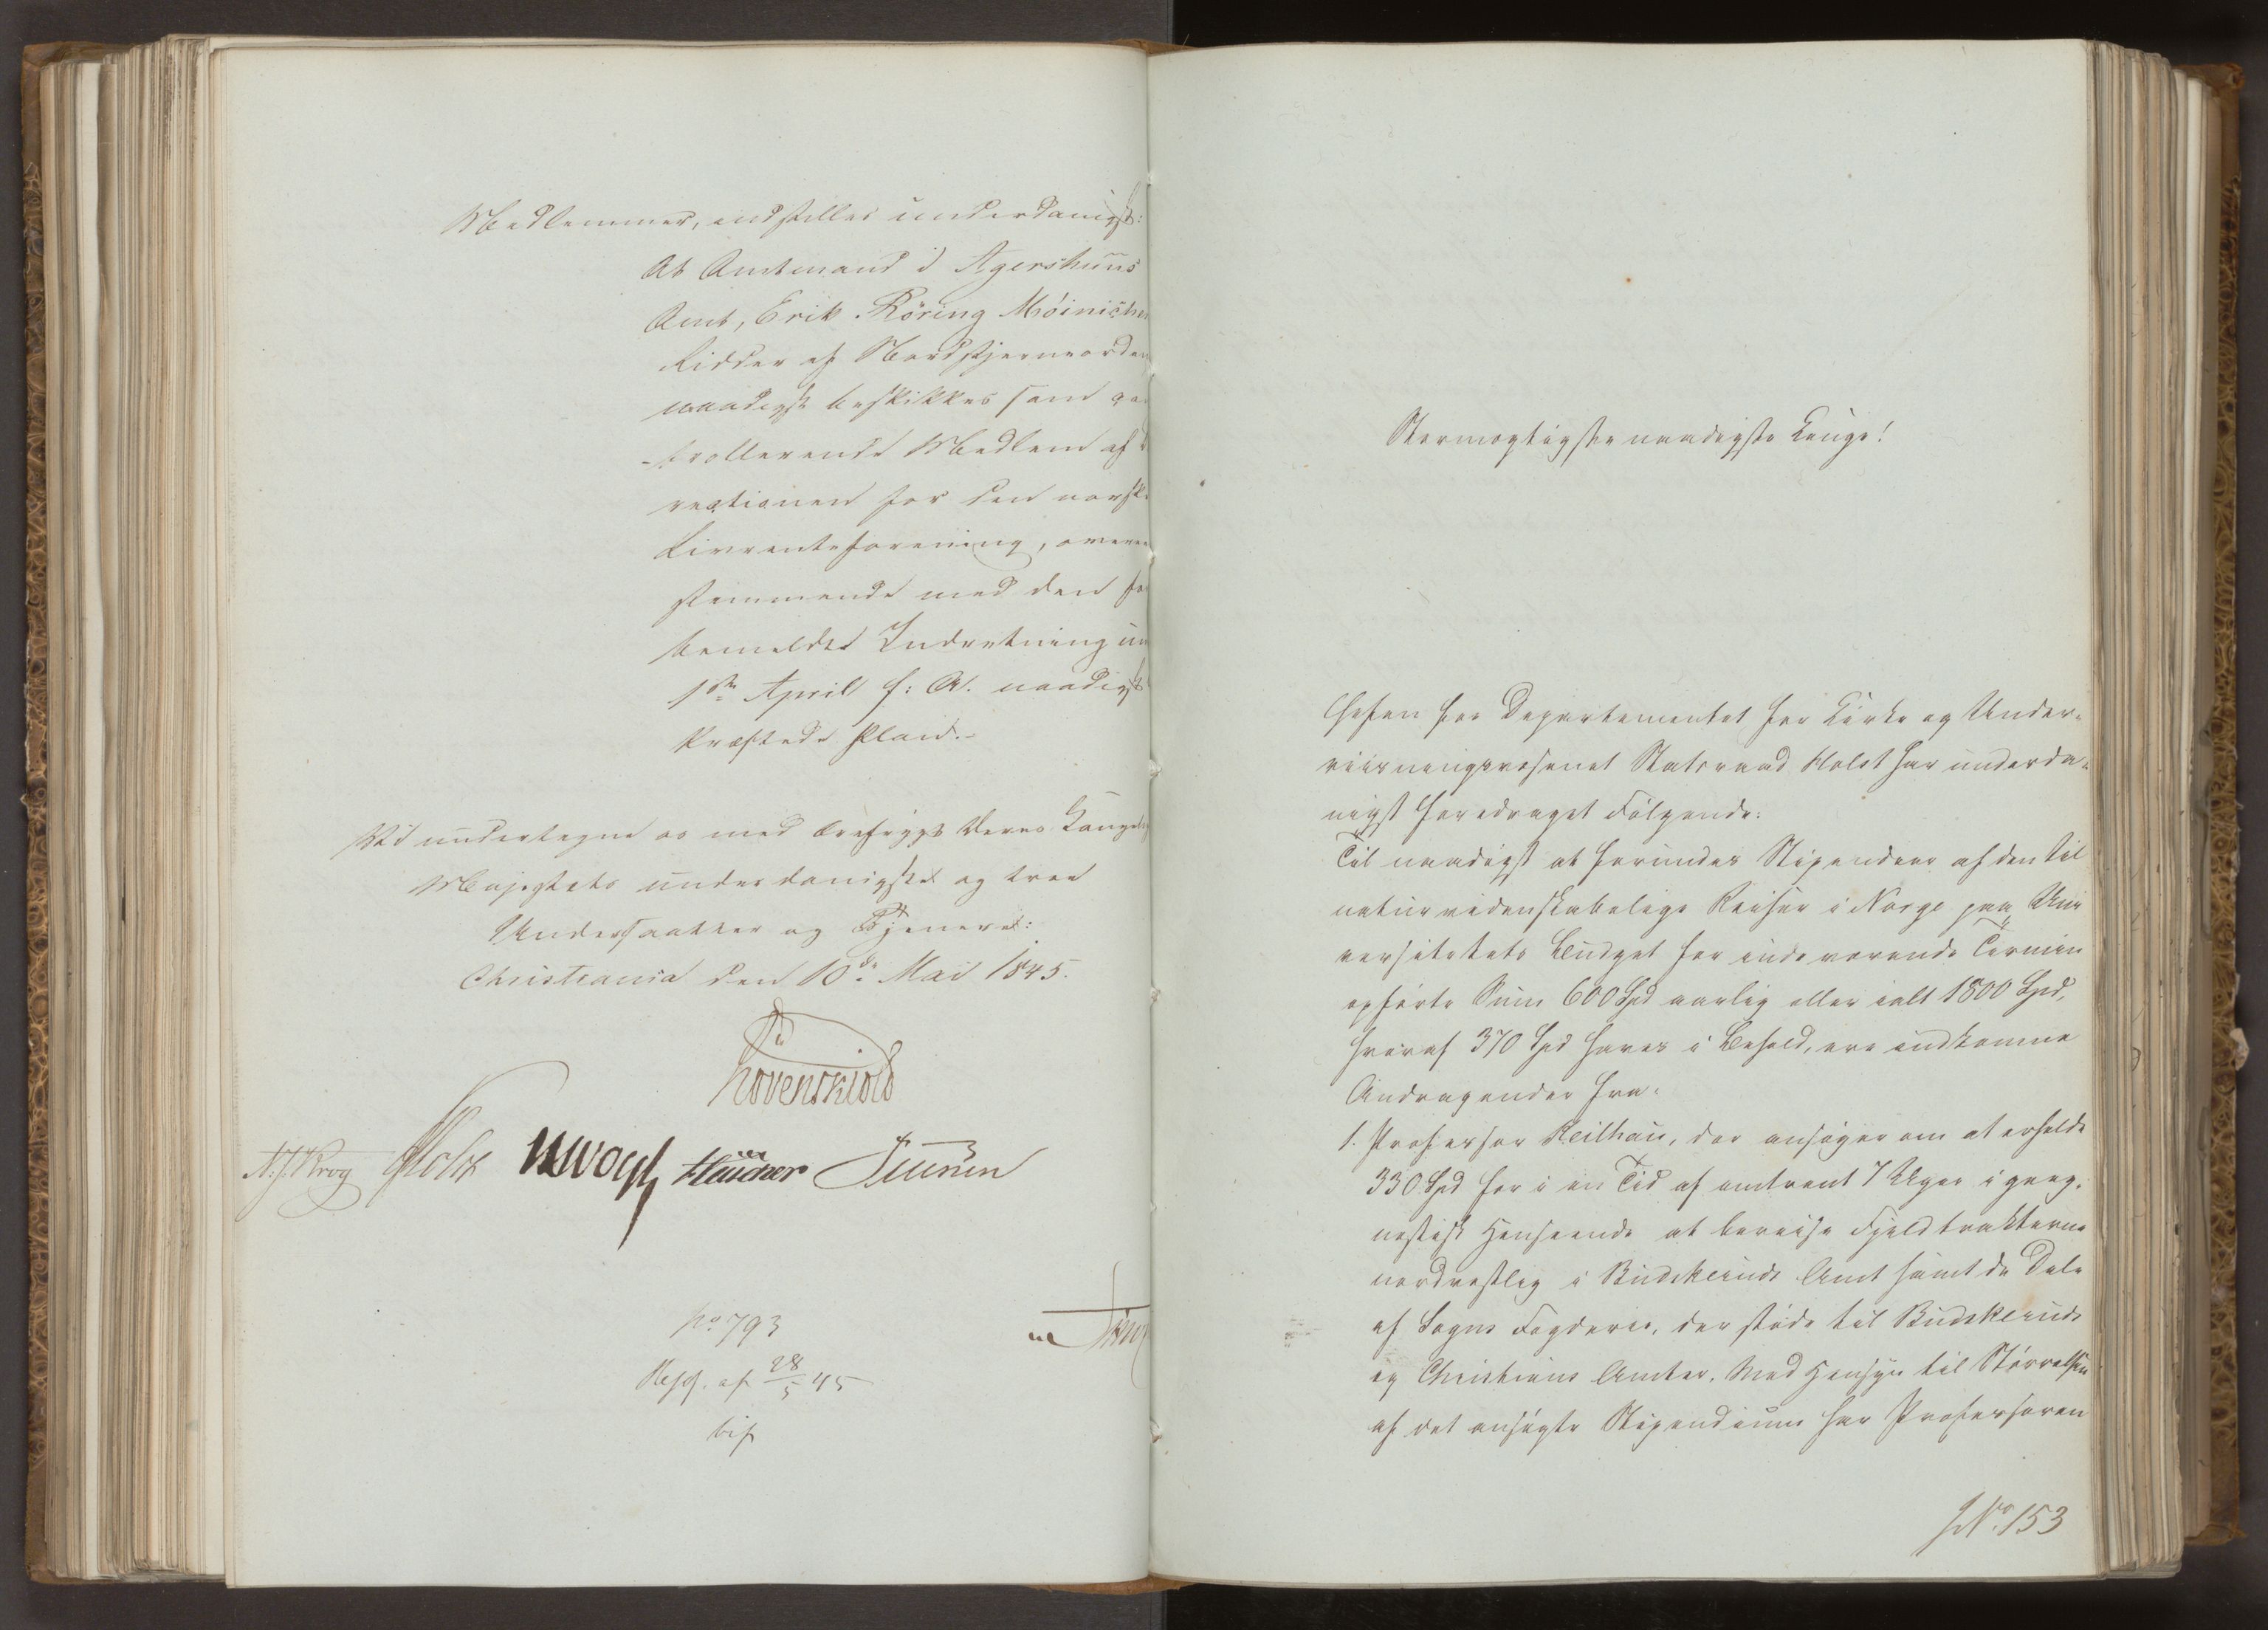 Medlemmer, indstilles underdanigst:
At Amtmand i Agershuus
Amt, Erik Röring Möinichen
Ridder af Nordstjerneorden
naadigst beskikkes som con
trollerende Medlem af
rectionen for den norske
Livrenteforening, overeens
stemmende med den for
bemeldte Indretning un
1ste April f: A. naadigst
stadfæstede Plan.
Vi undertegne os med Ærefrygt Deres Kongelige
Majestæts underdanigste og troe
Undersaatter og Tjenere:
Christiania den 10de Mai 1845.
Løvenskiold
N. J. Krog Holst Vogt
No 793
Resol. af 28/5 45
bif.
Stormægtigste naadigste Konge!
Chefen for Departementet for Kirke og Under-
viisningsvæsenet Statsraad Holst har underda-
nigst foredraget Følgende:
Til naadigst at forundes Stipendier af den til
naturvidenskabelige Reiser i Norge paa Uni
versitetets Budget for indeværende Termin
opførte Sum 600 Spd aarlig eller ialt 1800 Spd,
hvoraf 370 Spd haves i Behold, ere indkomne
Andragender fra:
1. Professor Keilhau, der ansøger om at erholde
330 Spd for i en Tid af omtrent 7 Uger i geog-
nostisk Henseende at bereise Fjeldtrakterne
nordvestlig i Buskeruds Amt samt de Dele
af Sogns Fogderie, der støde til Buskeruds
og Christians Amter. Med Hensyn til Størrelsen
af det ansøgte Stipendium har Professoren
J No 153